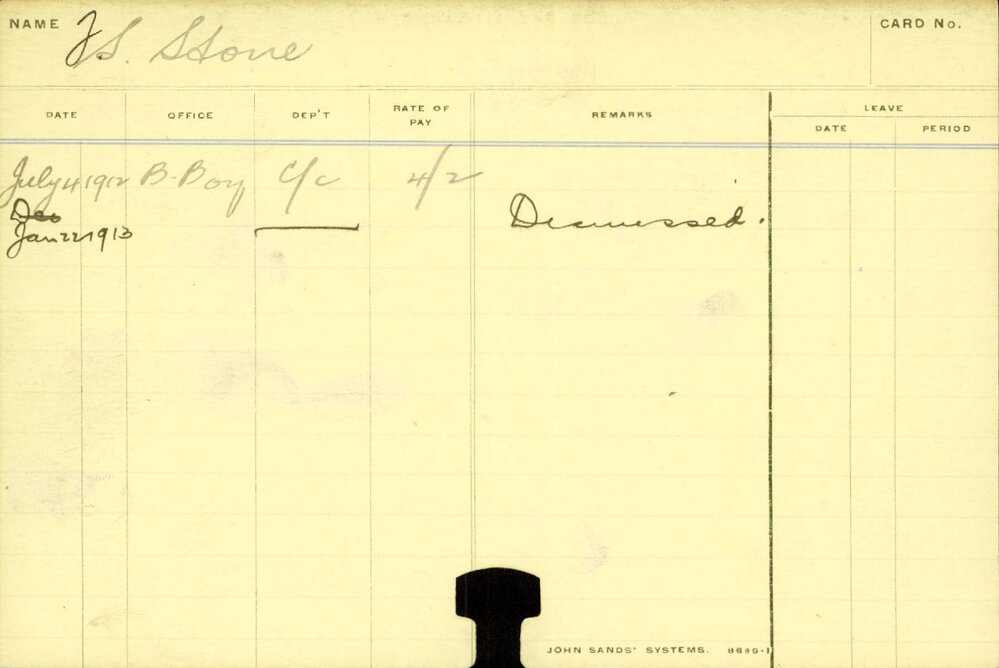 NAME J S. Stone CARD No.
DATE OFFICE DEP'T RATE OF PAY REMARKS LEAVE
DATE PERIOD
July 4 1912 B. Boy C/c 4/2
Dec
Jan 22 1913 Dismissed.
JOHN SANDS' SYSTEMS. 8689-1